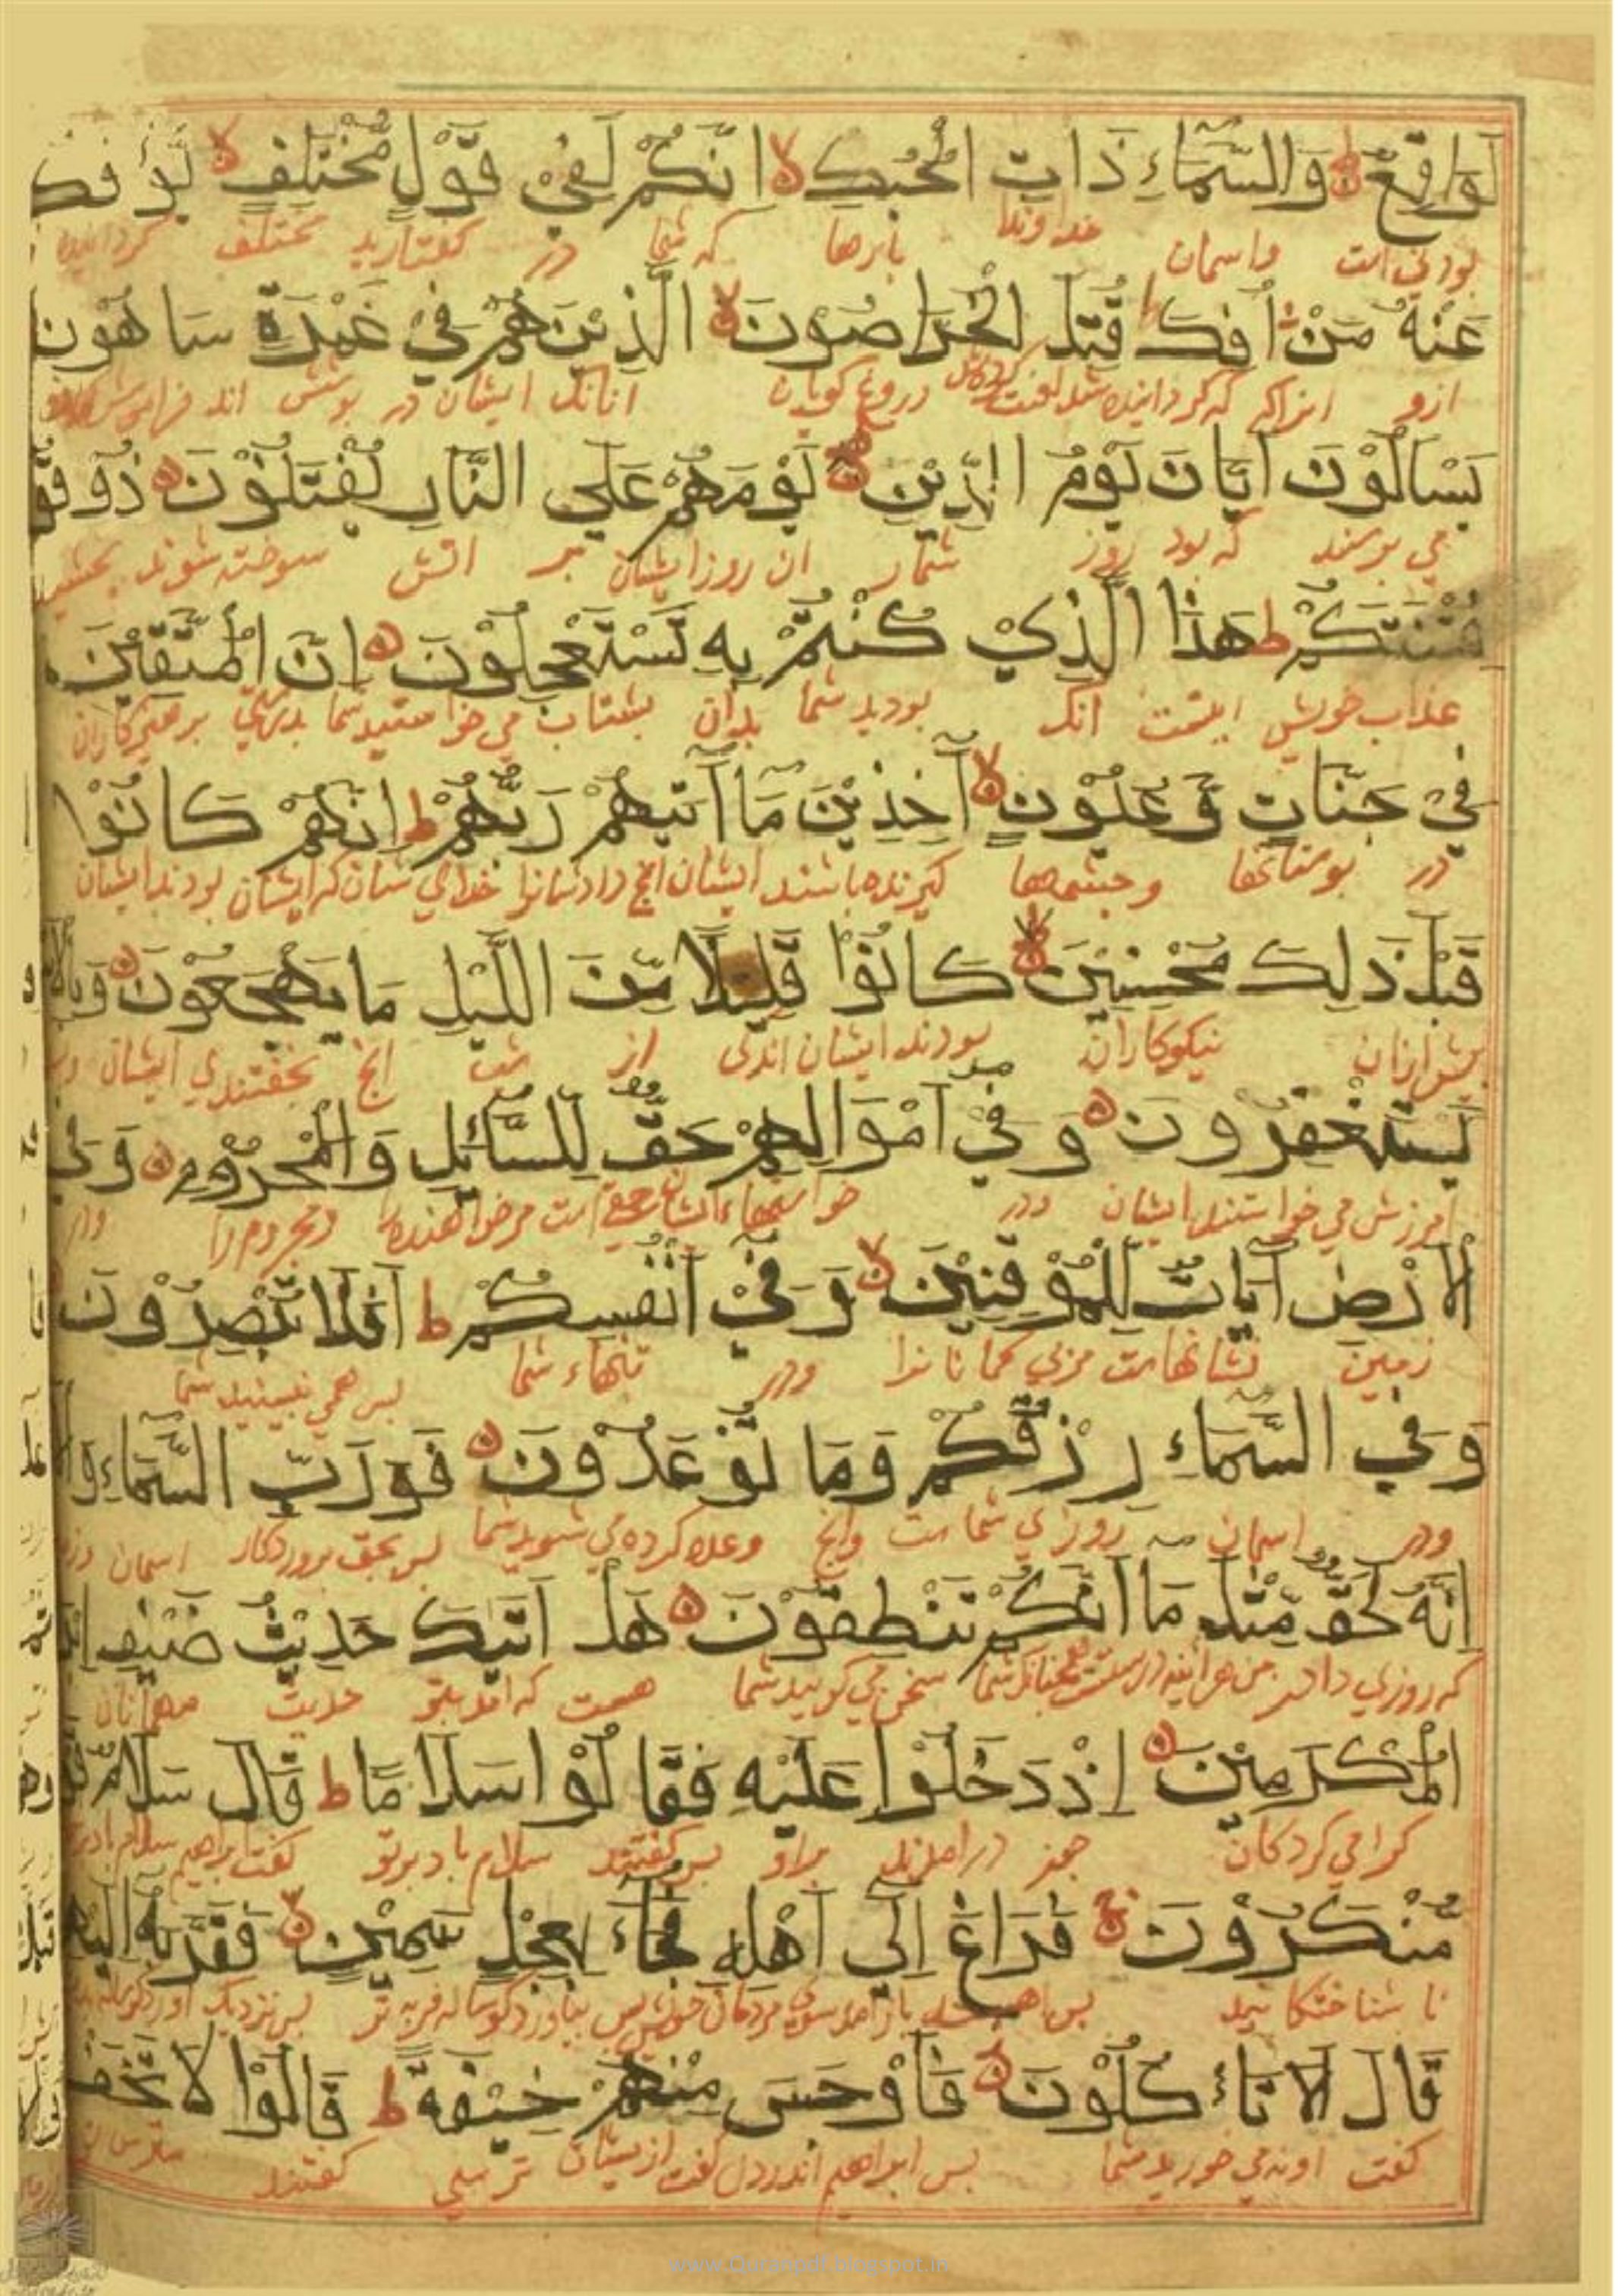 لَوَاقِعٌ وَالسَّمَاءِ ذَاتِ الْحُبُكِ اِنَّكُمْ لَفِيْ قَوْلٍ مُّخْتَلِفٍ يُّؤْفَكُ
بودنی است واسمان خداوند باىرها که شما در کفتارید مختلف کردانیده
عَنْهُ مَنْ اُفِكَ قُتِلَ الْخَرَّاصُوْنَ الَّذِيْنَ هُمْ فِيْ غَمْرَةٍ سَاهُوْنَ
ازو انراکه که کردانیده شد لعنت کرده شد دروغ کویان انانک ایشان در پوشش اند
يَسْاَلُوْنَ اَيَّانَ يَوْمُ الدِّيْنِ يَوْمَ هُمْ عَلَي النَّارِ يُفْتَنُوْنَ ذُوْقُوْا
می پرسند که بود روز شمار ان روز ایشان بر اتش سوخته شوند بچشید
فِتْنَتَكُمْ ط هٰذَا الَّذِيْ كُنْتُمْ بِهِ تَسْتَعْجِلُوْنَ اِنَّ الْمُتَّقِيْنَ
عذاب خویش اینست انک بودید شما بدان بشتاب می خواستید شما بدرستی پرهیزکاران
فِيْ جَنَّاتٍ وَّعُيُوْنٍ آخِذِيْنَ مَا آتٰيهُمْ رَبُّهُمْ ط اِنَّهُمْ كَانُوْا
در بوستانها وچشمها کیرنده باشند ایشان انچ داد شانرا خدای شان که ایشان بودند ایشان
قَبْلَ ذٰلِكَ مُحْسِنِيْنَ كَانُوْا قَلِيْلًا مِّنَ اللَّيْلِ مَا يَهْجَعُوْنَ وَبِالْا
پیش ازان نیکوکاران بودند ایشان اندکی از شب انچ بخفتندی ایشان
يَسْتَغْفِرُوْنَ وَفِيْ اَمْوَالِهِمْ حَقٌّ لِّلسَّائِلِ وَالْمَحْرُوْمِ وَفِي
امرزش می خواستند ایشان ودر خواستهاء ایشان حقی است مرخواهنده را ومحروم را ودر
الْاَرْضِ آيَاتٌ لِّلْمُوْقِنِيْنَ وَفِيْ اَنْفُسِكُمْ ط اَفَلَا تُبْصِرُوْنَ
زمین نشانهاست مربی کمانانرا ودر تنهاء شما پس همی نبینید شما
وَفِي السَّمَاءِ رِزْقُكُمْ وَمَا تُوْعَدُوْنَ فَوَرَبِّ السَّمَاءِ وَالْا
ودر اسمان روزی شماست وانچ وعده کرده می شوید شما پس بحق پروردکار اسمان
اِنَّهُ لَحَقٌّ مِّثْلَ مَا اَنَّكُمْ تَنْطِقُوْنَ هَلْ اَتٰيكَ حَدِيْثُ ضَيْفِ
که روزی دادن من هراینه درست همچنانک شما سخن می کویید شما هست که امد بتو حدیث مهمانان
الْمُكْرَمِيْنَ اِذْ دَخَلُوْا عَلَيْهِ فَقَالُوْا سَلَامًا ط قَالَ سَلَامٌ
کرامی کردکان در امدند براو پس کفتند سلام باد برتو کفت ابراهیم سلام باد
مُّنْكَرُوْنَ فَرَاغَ اِلَي اَهْلِهِ فَجَاءَ بِعِجْلٍ سَمِيْنٍ فَقَرَّبَهُ اِلَيْهِمْ
نا شناختکانید پس باز امد سوی مردمان خویش پس بیاورد کوساله فربه پس نزدیک اورد
قَالَ اَلَا تَاْكُلُوْنَ فَاَوْجَسَ مِنْهُمْ خِيْفَةً ط قَالُوْا لَا تَخَفْ
کفت او نمی خورید شما پس ابراهیم اندر دل کفت از یشان ترسی کفتند مترس
www.Quranpdf.blogspot.in